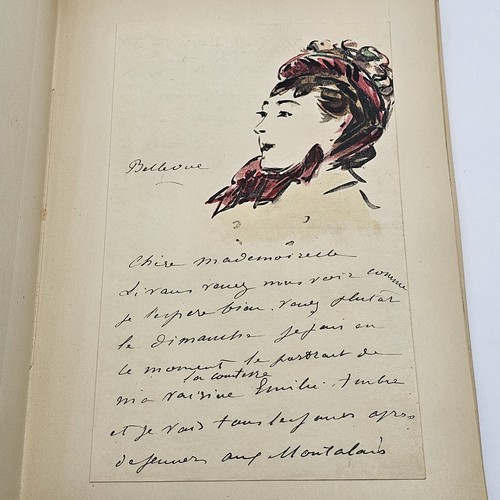 Bellevue
Chère mademoiselle
Si vous venez nous voir comme
je l'espère bien. venez plutôt
le dimanche je fais en
ce moment le portrait de
la comtesse
ma voisine Emilie. Ambre
et je vais tous les jours après
dejeuner aux Montalais